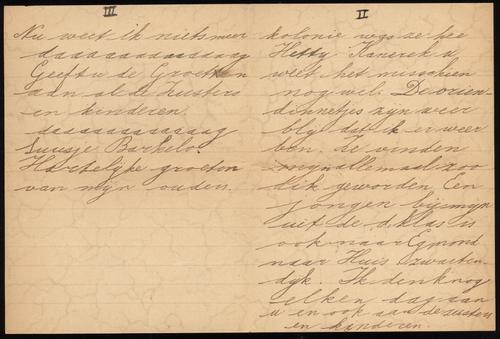 II
kolonie was ze bee
Hetty Kanerek u
weet het misschien
nog wel. De vrien-
dinnetjes zijn weer
bly dat ik er weer
ben. de vinden
my allemaal zoo
dik geworden Een
jongen bij mijn
uit de klas is
ook naar Egmond
naar Huis Zwarten-
dyk. Ik denk nog
elken dag aan
u en ook aan de zusters
en kinderen.
III
Nu weet ik niets meer
daaaaaaaaaaaaag
Geeft u de Groetten
aan al de Zusters
en kinderen.
daaaaaaaaaaag
Suusje Barkelo.
Hartelijke groeten
van mijn ouders.